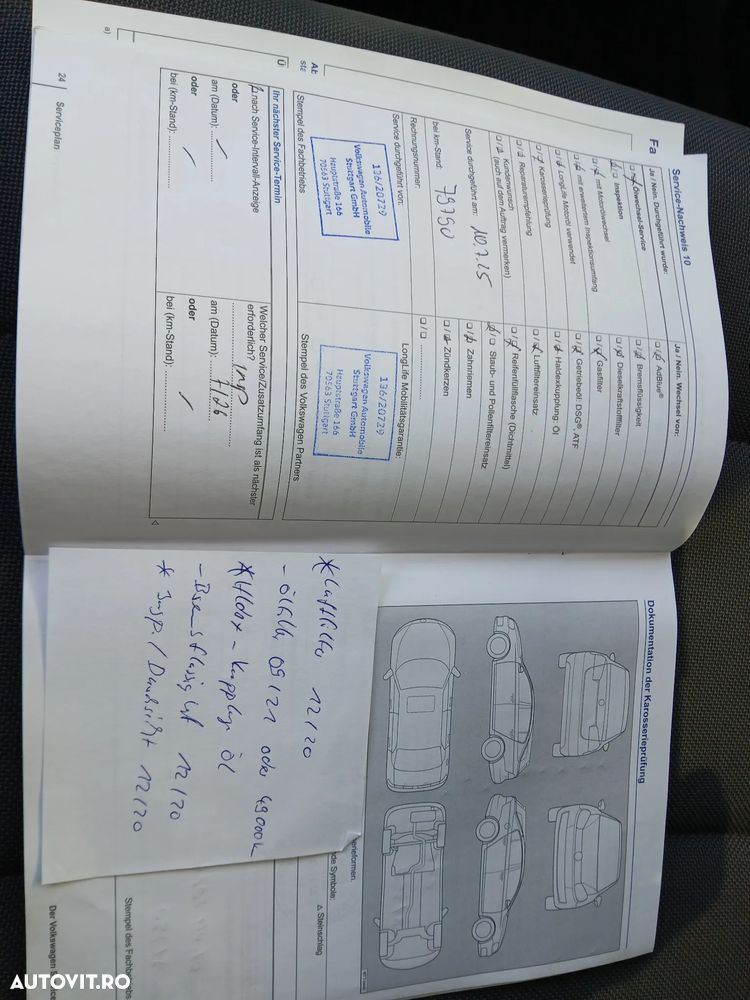 Service-Nachweis 10
Ja / Nein. Durchgeführt wurde:
Ölwechsel-Service
Inspektion
mit Motorölwechsel
mit erweitertem Inspektionsumfang
LongLife Motoröl verwendet
Karosserieprüfung
Reparaturempfehlung
Kundenwunsch
(auch auf dem Auftrag vermerken)
Service durchgeführt am: 10.7.25
bei km-Stand: 79790
Rechnungsnummer:
Service durchgeführt von:
136/20729
Volkswagen Automobile
Stuttgart GmbH
Hauptstraße 166
70563 Stuttgart
Stempel des Fachbetriebs
Ja / Nein. Wechsel von:
AdBlue®
Bremsflüssigkeit
Dieselkraftstofffilter
Gasfilter
Getriebeöl: DSG®, ATF
Haldexkupplung: Öl
Luftfiltereinsatz
Reifenfüllflasche (Dichtmittel)
Staub- und Pollenfiltereinsatz
Zahnriemen
Zündkerzen
LongLife Mobilitätsgarantie:
136/20729
Volkswagen Automobile
Stuttgart GmbH
Hauptstraße 166
70563 Stuttgart
Stempel des Volkswagen Partners
Ihr nächster Service-Termin
nach Service-Intervall-Anzeige
oder
am (Datum):
oder
bei (km-Stand):
Welcher Service/Zusatzumfang ist als nächster
erforderlich?
am (Datum): 7/26
oder
bei (km-Stand):
24 Serviceplan
Fa
Ab
ste
Ü
a)
Dokumentation der Karosserieprüfung
erieformen.
de Symbole:
△ Steinschlag
Stempel des Fachbetriebs
Der Volkswagen S
* Luftfilter 12/20
- Ölfilter 09/21 oder 49000k
* Haldex-Kupplung Öl
- Bremsflüssigkeit 12/20
* Insp. / Durchsicht 12/20
AUTOVIT.RO